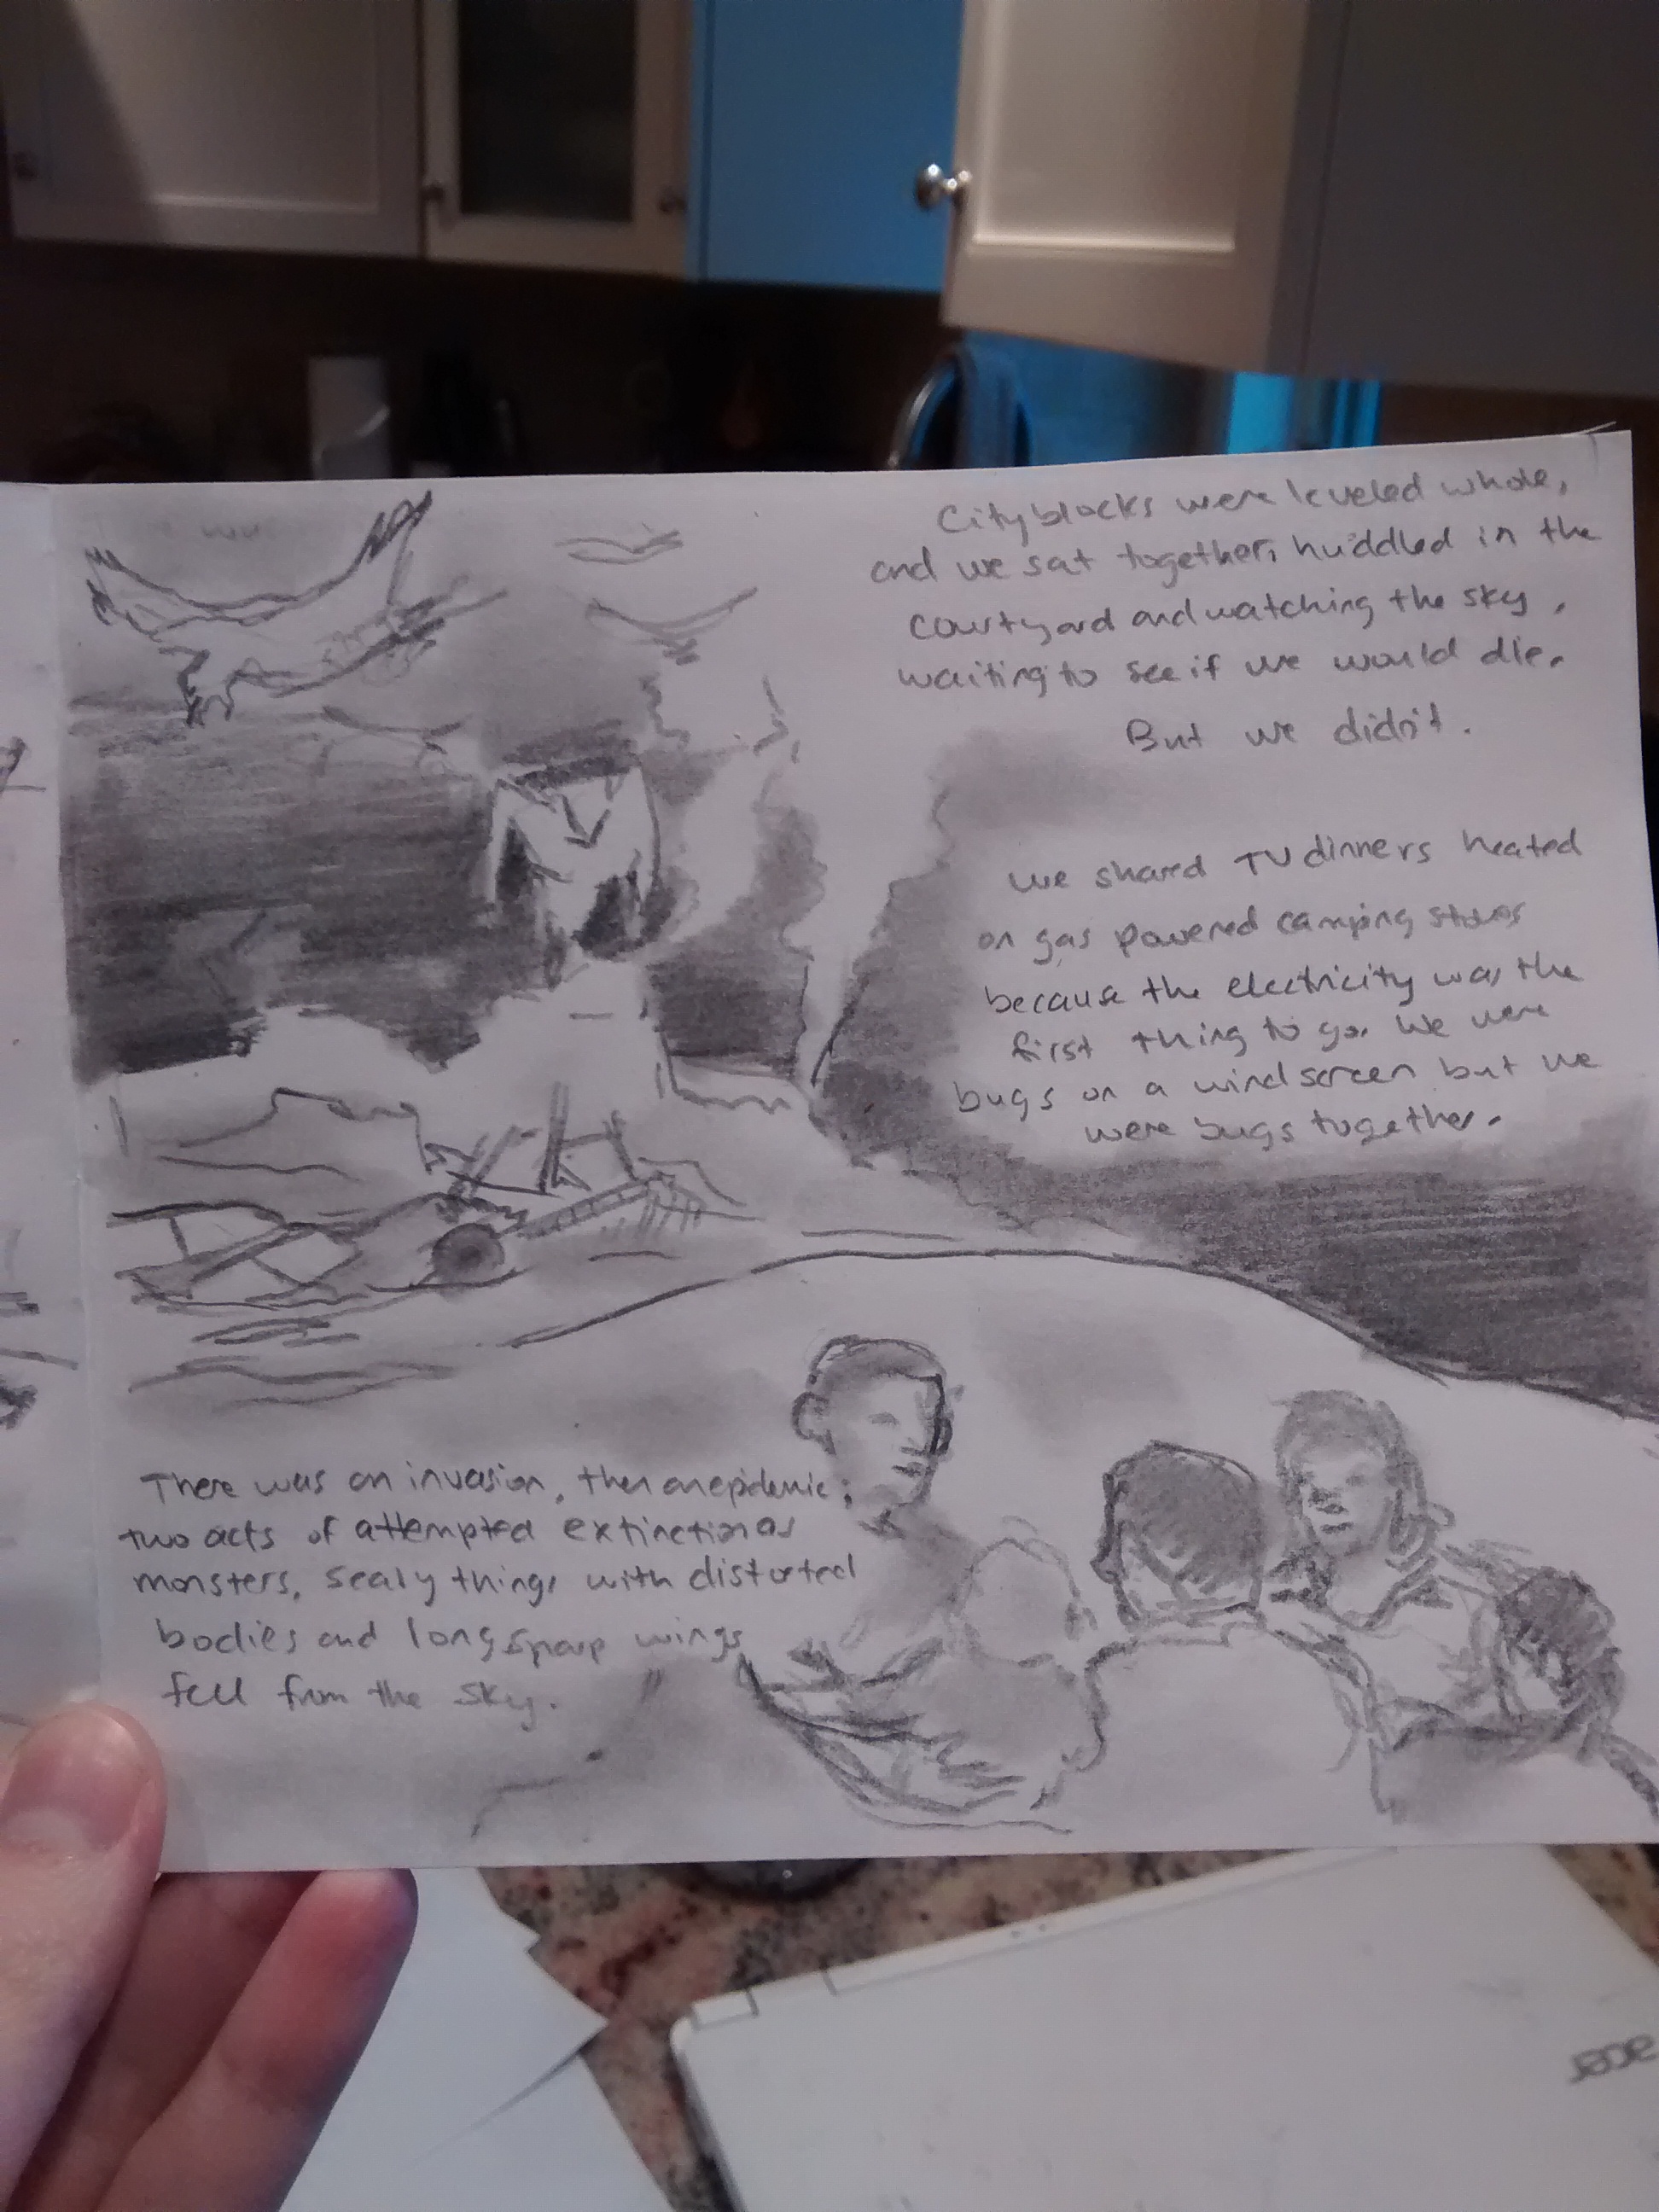 City blocks were leveled whole,
and we sat together, huddled in the
courtyard and watching the sky,
waiting to see if we would die.
But we didn't.
We shared TV dinners heated
on gas powered camping stoves
because the electricity was the
first thing to go. We were
bugs on a windscreen but we
were bugs together.
There was an invasion, then an epidemic;
two acts of attempted extinction as
monsters, scaly things with distorted
bodies and long sharp wings
fell from the sky.
acer